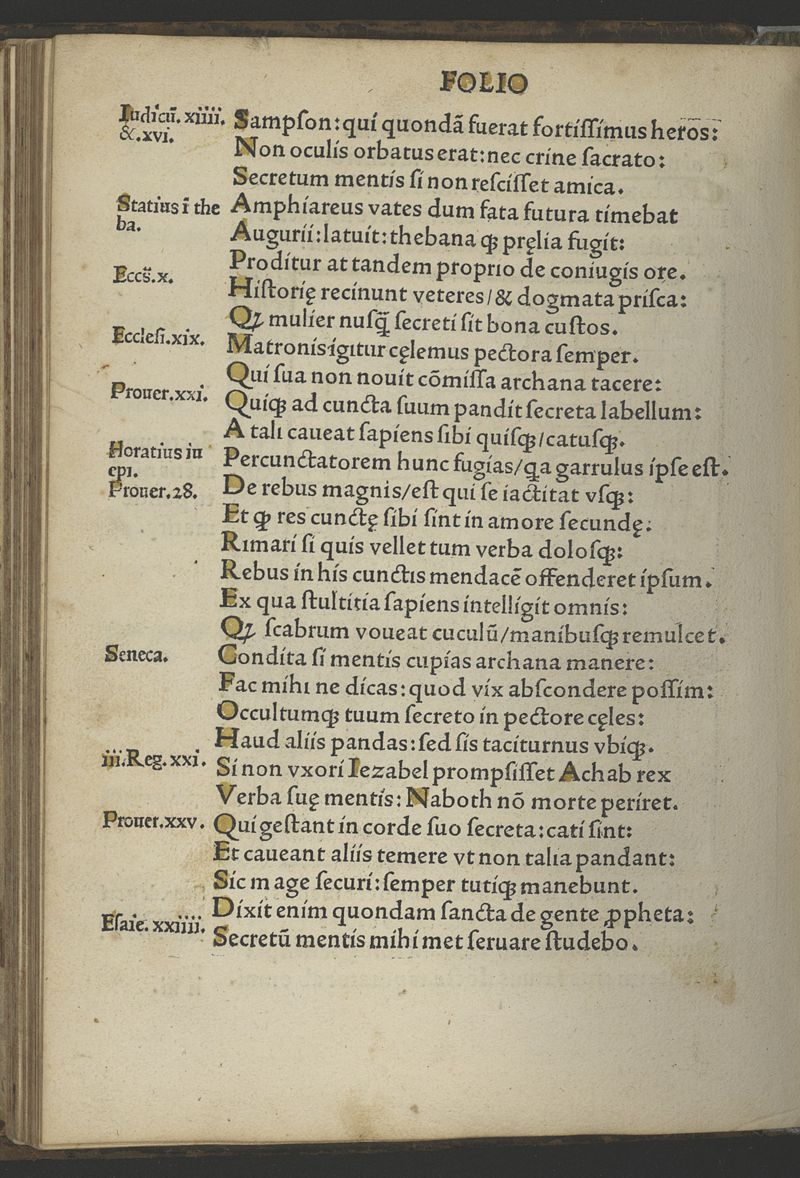 FOLIO
Iudicū. xiiii.
&.xvi.
Sampſon: qui quondã fuerat fortiſſimus heros̄:
Non oculis orbatus erat: nec crine ſacrato:
Secretum mentis ſi non reſciſſet amica.
Statius ī the
ba.
Amphiareus vates dum fata futura timebat
Augurii: latuit: thebana qꝫ pręlia fugit:
Proditur at tandem proprio de coniugis ore.
Eccs̄.x.
Hiſtorię recinunt veteres/& dogmata priſca:
Qꝫ mulier nuſq̃ ſecreti ſit bona cuſtos.
Eccleſi.xix.
Matronis igitur cęlemus pectora ſemper.
Qui ſua non nouit cõmiſſa archana tacere:
Prouer.xxi.
Quiqꝫ ad cuncta ſuum pandit ſecreta labellum:
A tali caueat ſapiens ſibi quiſqꝫ/catuſqꝫ.
Horatius in
epi.
Percunctatorem hunc fugias/qa garrulus ipſe eſt.
Prouer.28.
De rebus magnis/eſt qui ſe iactitat vſqꝫ:
Et qꝫ res cunctę ſibi ſint in amore ſecundę:
Rimari ſi quis vellet tum verba doloſqꝫ:
Rebus in his cunctis mendacē offenderet ipſum.
Ex qua ſtultitia ſapiens intelligit omnis:
Qꝫ ſcabrum voueat cuculū/manibuſqꝫ remulcet.
Seneca.
Condita ſi mentis cupias archana manere:
Fac mihi ne dicas: quod vix abſcondere poſſim:
Occultumqꝫ tuum ſecreto in pectore cęles:
Haud aliis pandas: ſed ſis taciturnus vbiqꝫ.
iii.Reg.xxi.
Si non vxori Iezabel prompſiſſet Achab rex
Verba ſuę mentis: Naboth nō morte periret.
Prouer.xxv.
Qui geſtant in corde ſuo ſecreta: cati ſint:
Et caueant aliis temere vt non talia pandant:
Sic m age ſecuri: ſemper tutiqꝫ manebunt.
Eſaie.xxiiii.
Dixit enim quondam ſancta de gente ꝓpheta:
Secretū mentis mihi met ſeruare ſtudebo.